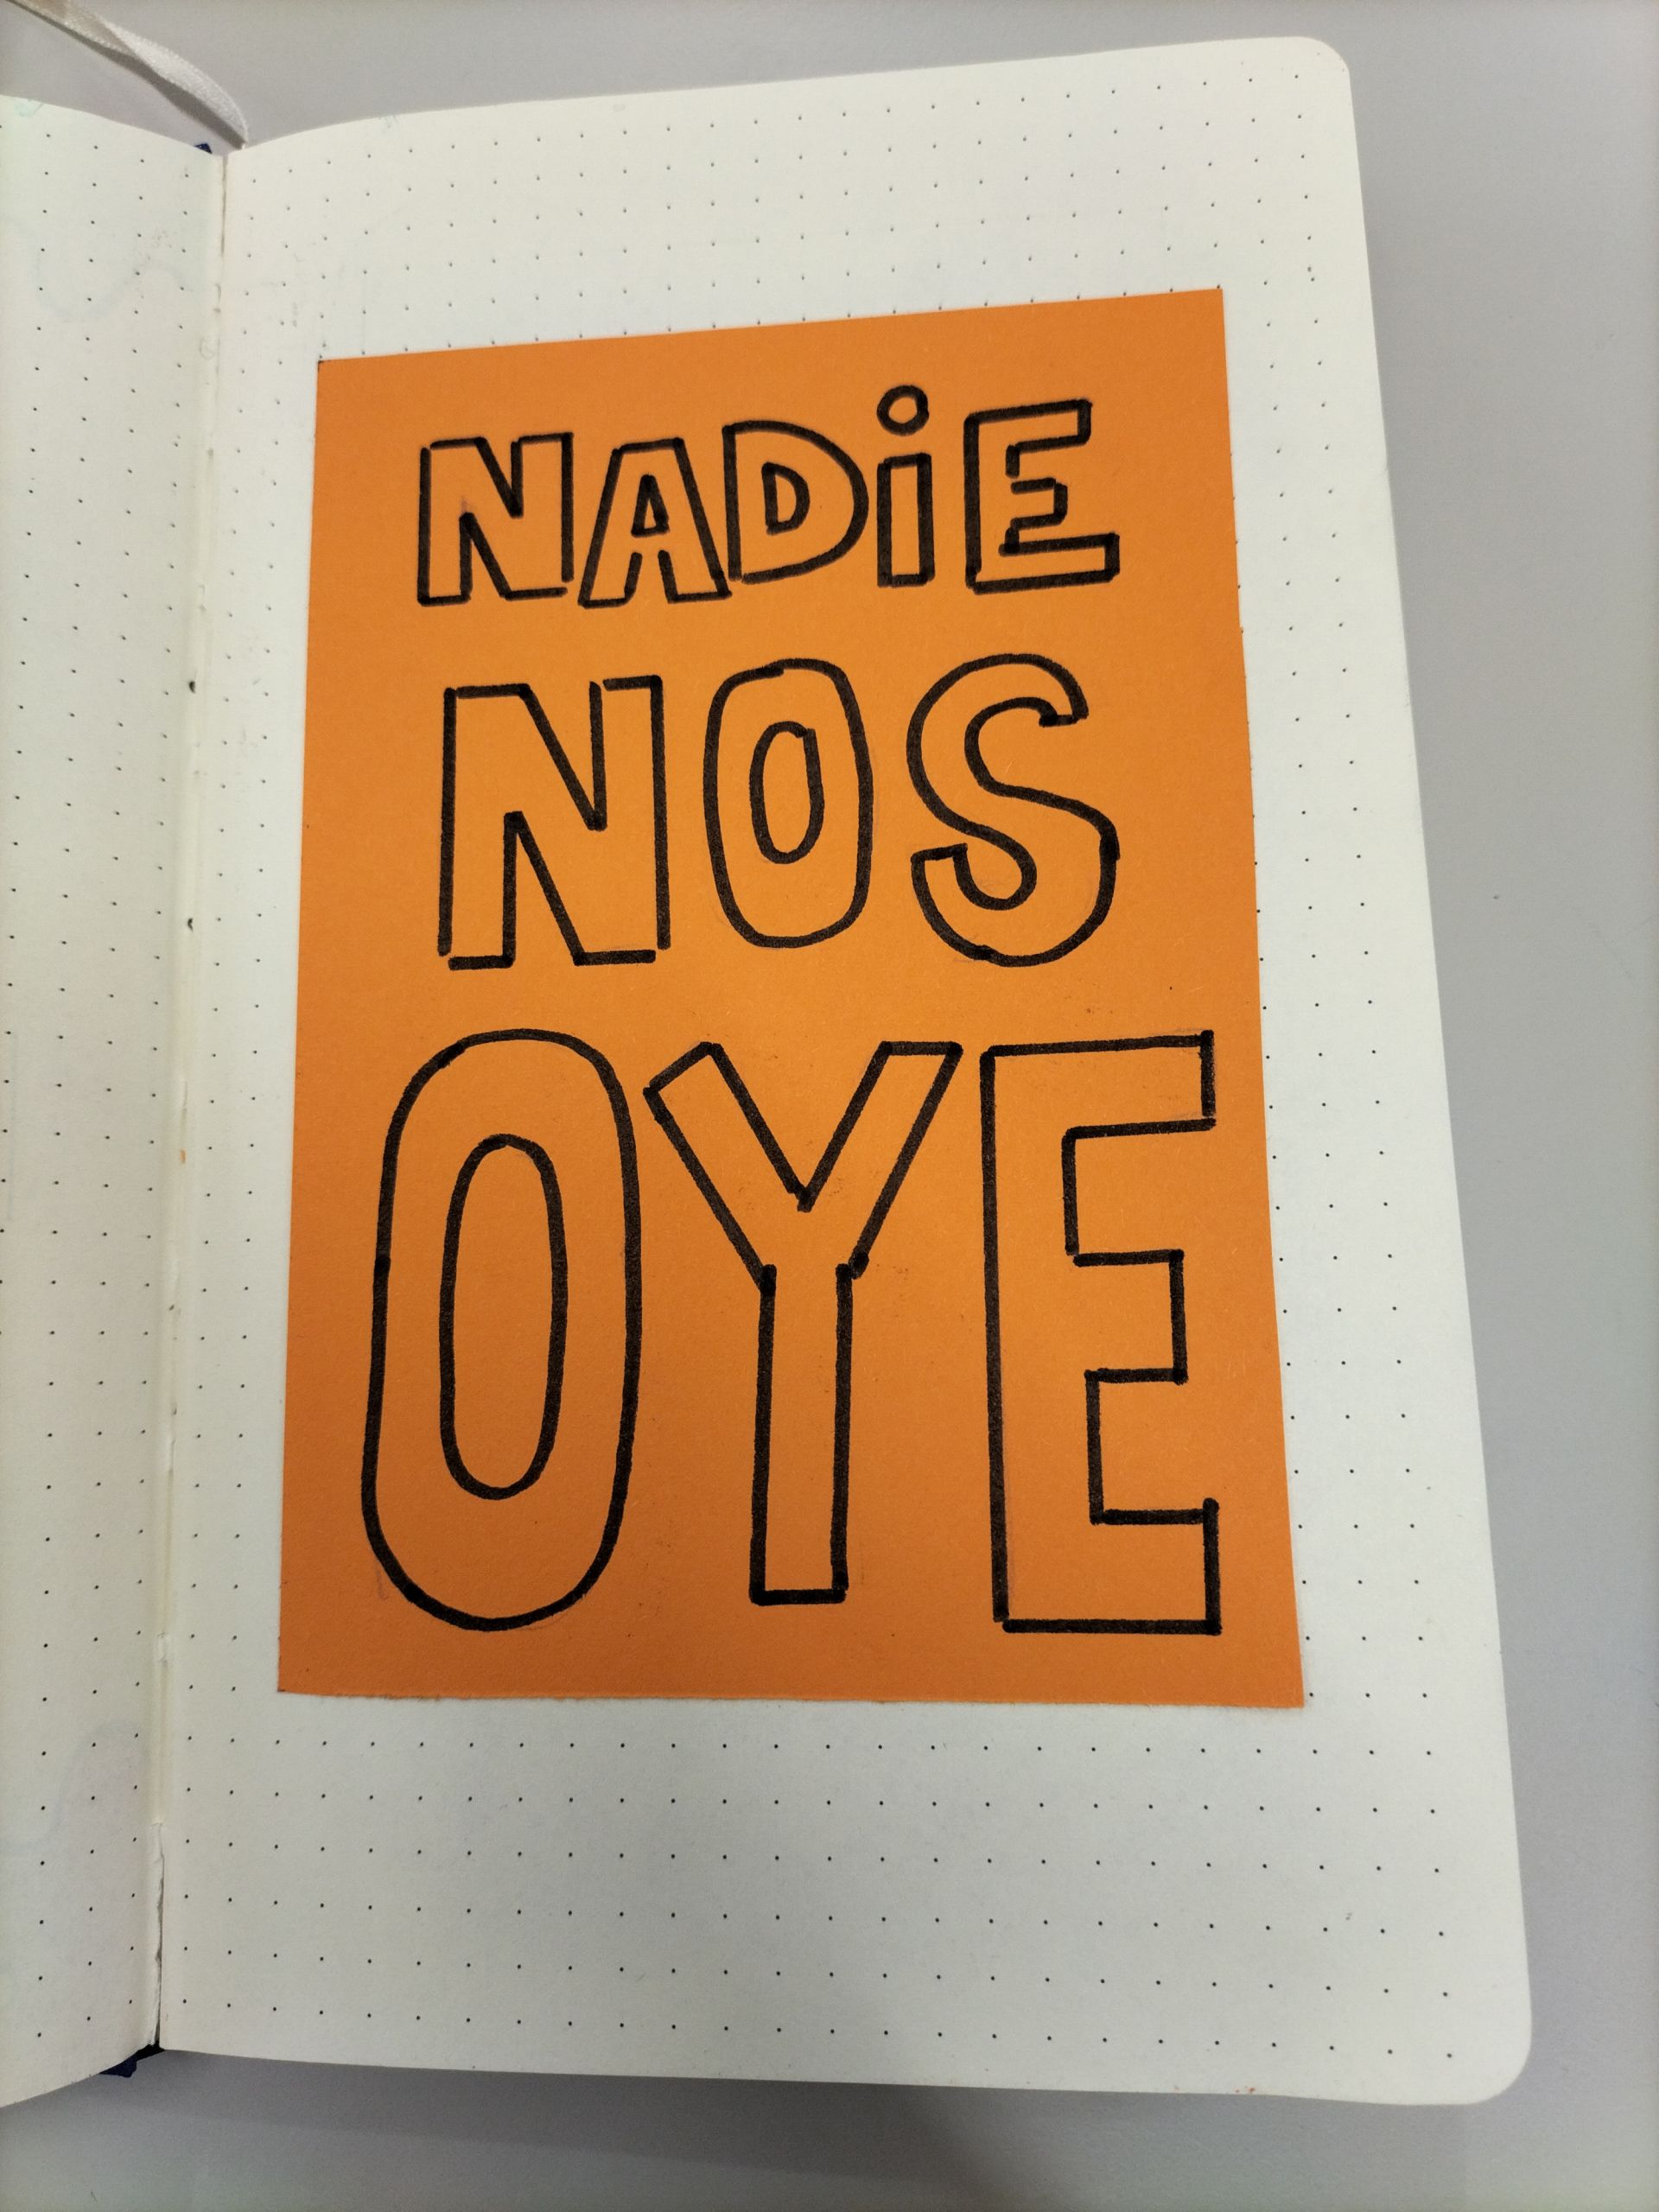 NADiE
NOS
OYE